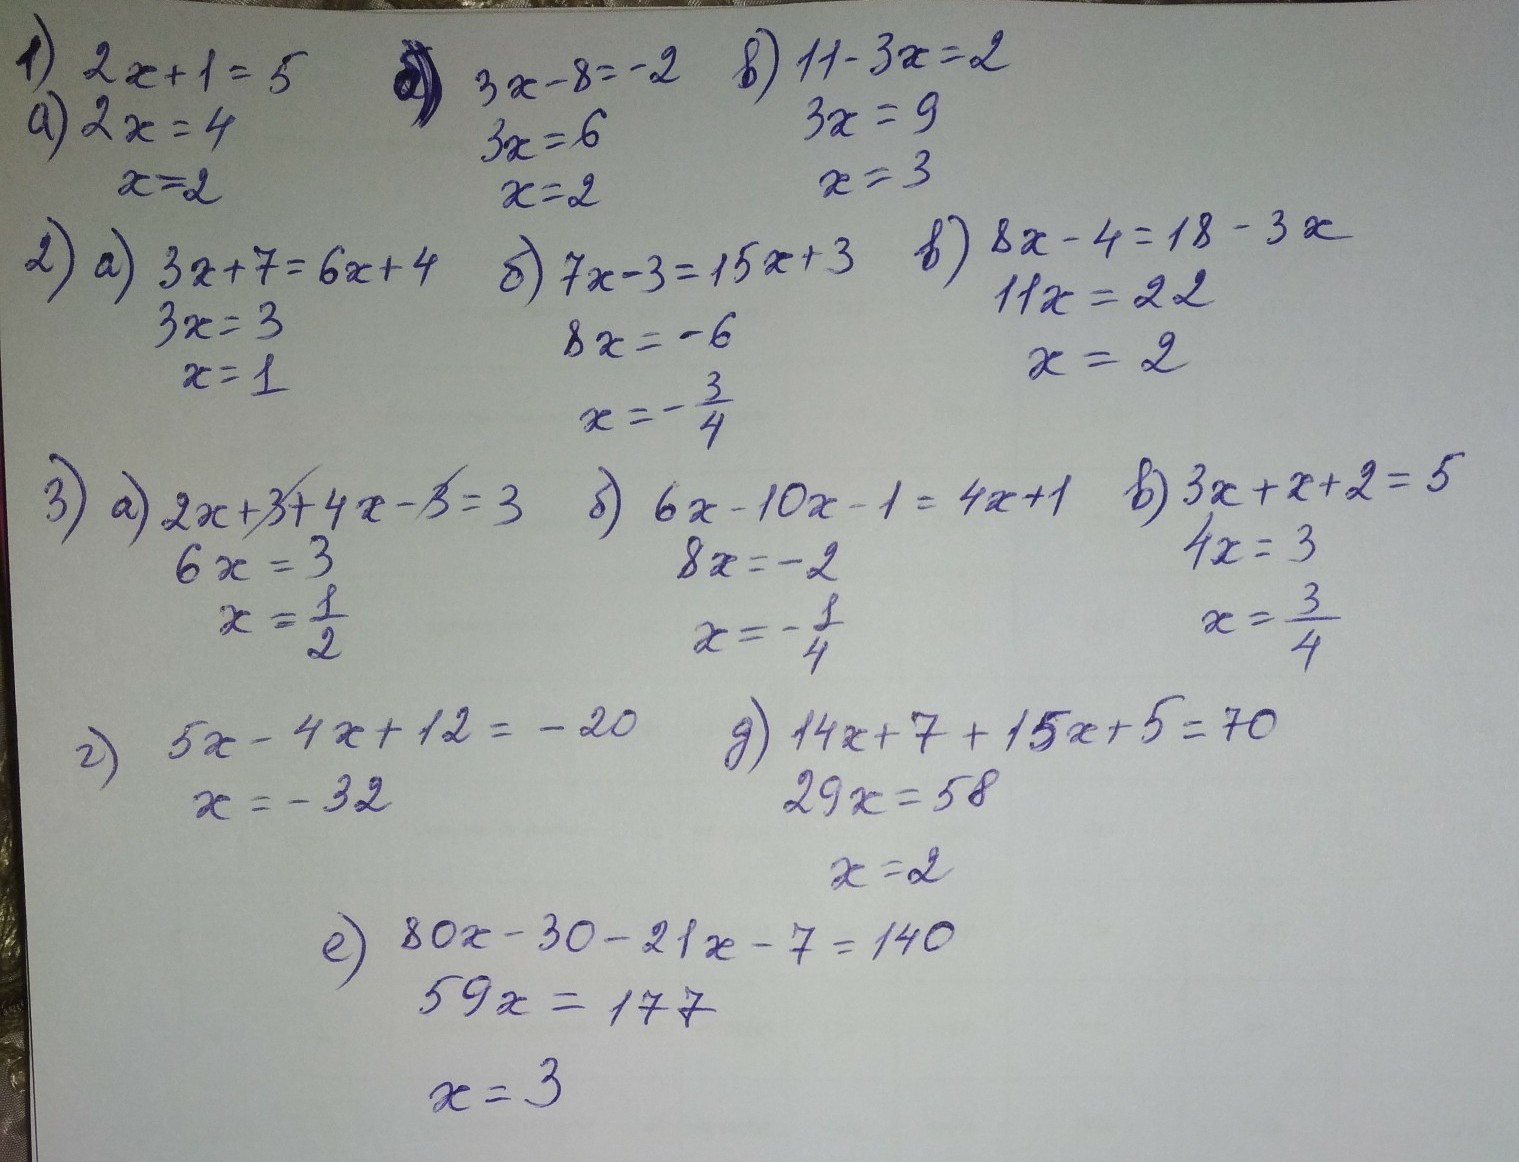 1) 2x+1=5 б) 3x-8=-2 в) 11-3x=2
а) 2x=4 3x=6 3x=9
x=2 x=2 x=3
2) а) 3x+7=6x+4 б) 7x-3=15x+3 в) 8x-4=18-3x
3x=3 8x=-6 11x=22
x=1 x=-3/4 x=2
3) а) 2x+3+4x-3=3 б) 6x-10x-1=4x+1 в) 3x+x+2=5
6x=3 8x=-2 4x=3
x=1/2 x=-1/4 x=3/4
г) 5x-4x+12=-20 д) 14x+7+15x+5=70
x=-32 29x=58
x=2
е) 80x-30-21x-7=140
59x=177
x=3